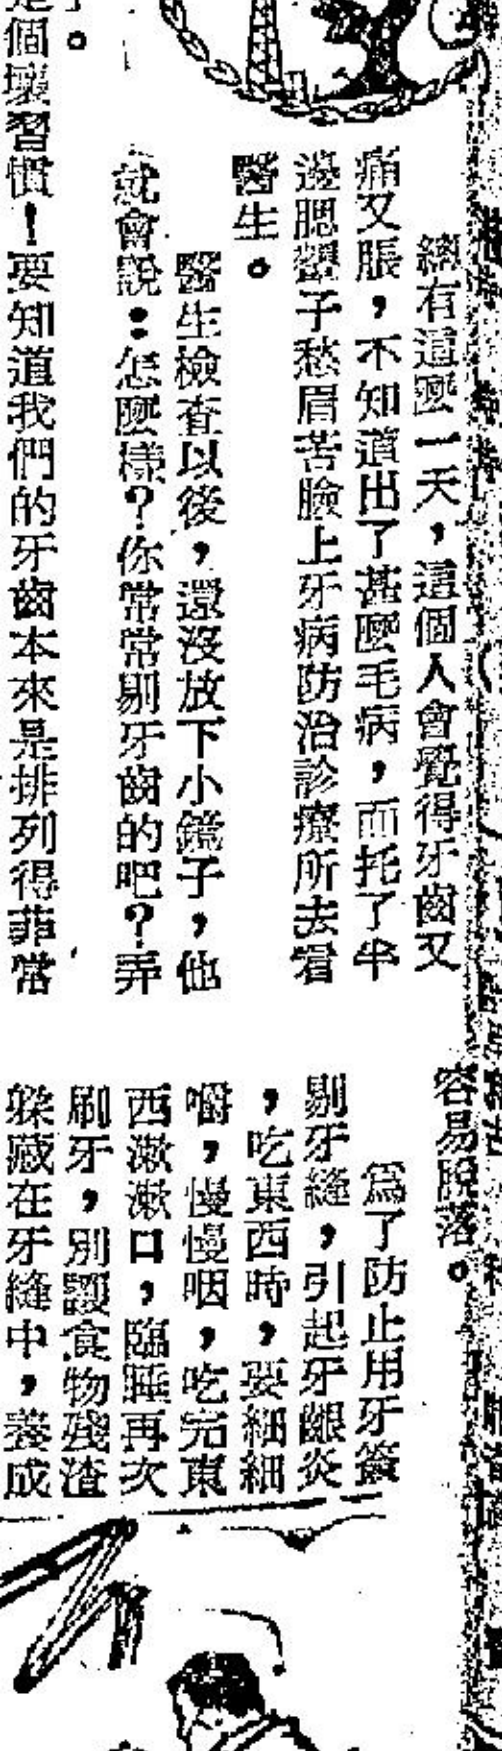 總有這麼一天，這個人會覺得牙齒又
痛又脹，不知道出了甚麼毛病，而托了半
邊腮幫子愁眉苦臉上牙病防治診療所去看
醫生。
醫生檢查以後，還沒放下小鏡子，他
就會說：怎麼樣？你常常剔牙齒的吧？弄
。
個壞習慣！要知道我們的牙齒本來是排列得非常
容易脫落。
爲了防止用牙簽
剔牙縫，引起牙齦炎
，吃東西時，要細細
嚼，慢慢咽，吃完東
西漱漱口，臨睡再次
刷牙，別讓食物殘渣
躲藏在牙縫中，養成